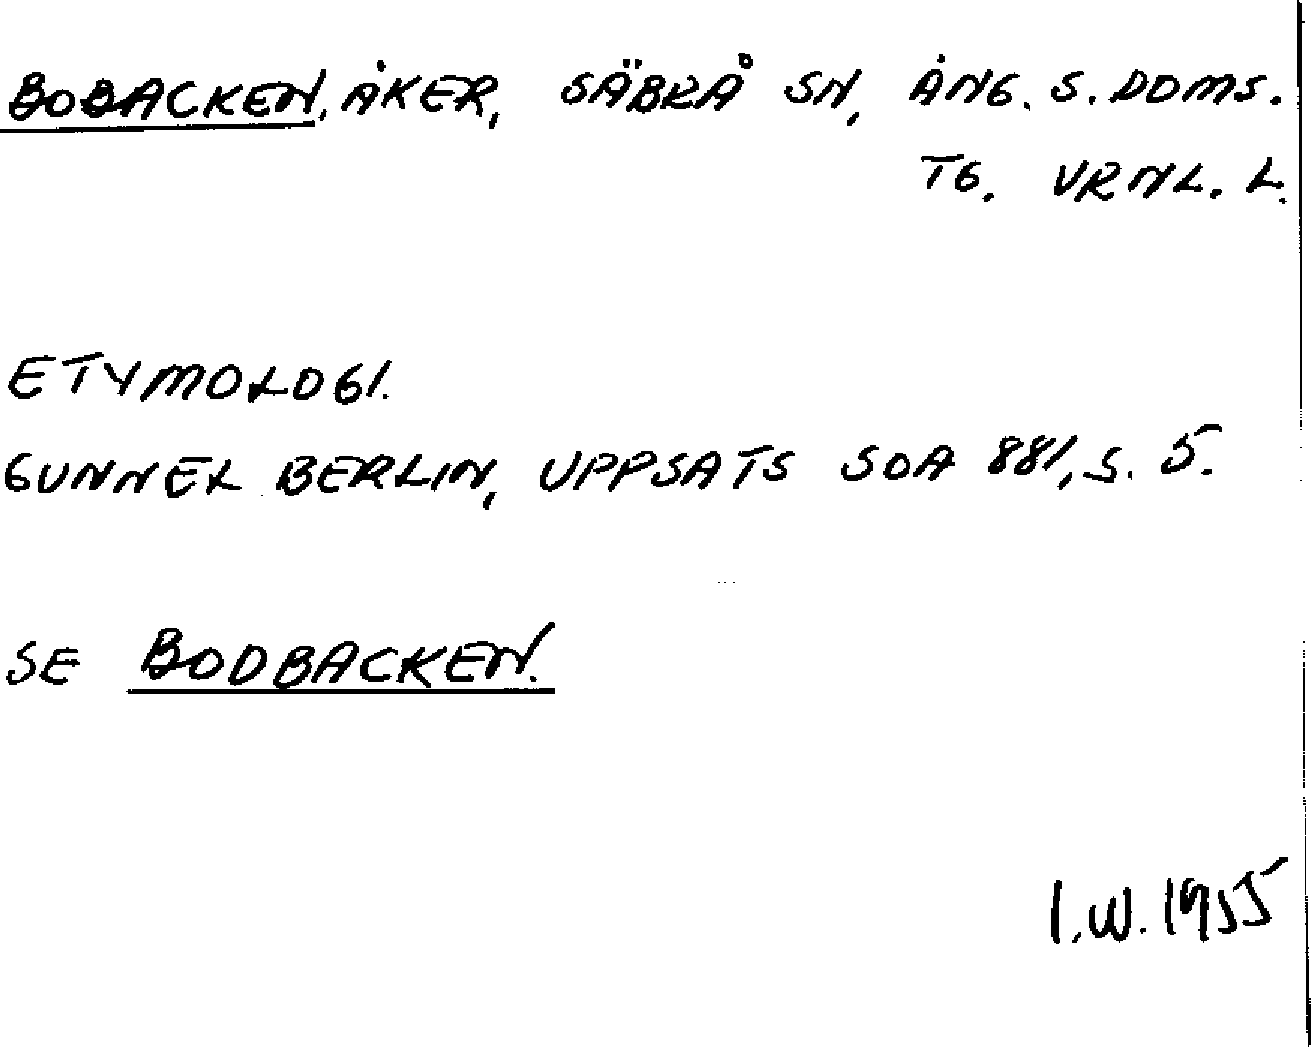 BOBACKEN, ÅKER, SÄBRÅ SN, ÅNG. S. DOMS.
TG. VRNL. L.
ETYMOLOGI.
GUNNEL BERLIN, UPPSATS SOA 881, S. 5.
SE BODBACKEN.
I.W. 1955